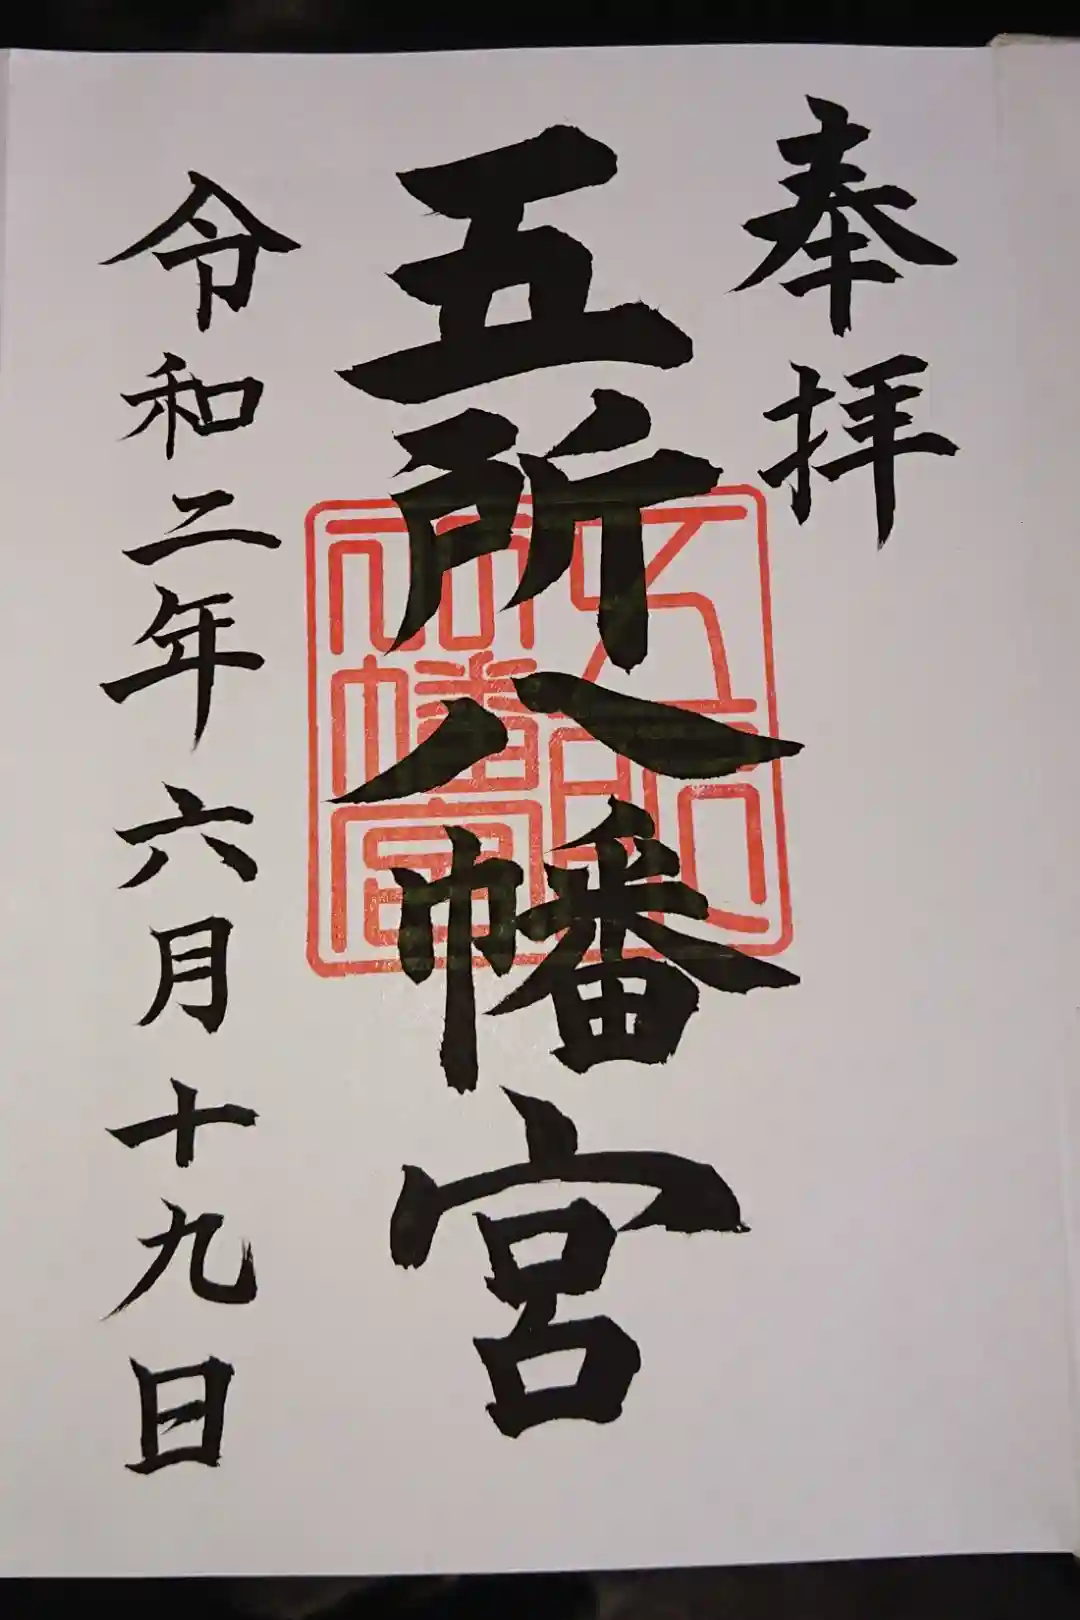 奉拝
五所八幡宮
五所八幡宮
令和二年六月十九日